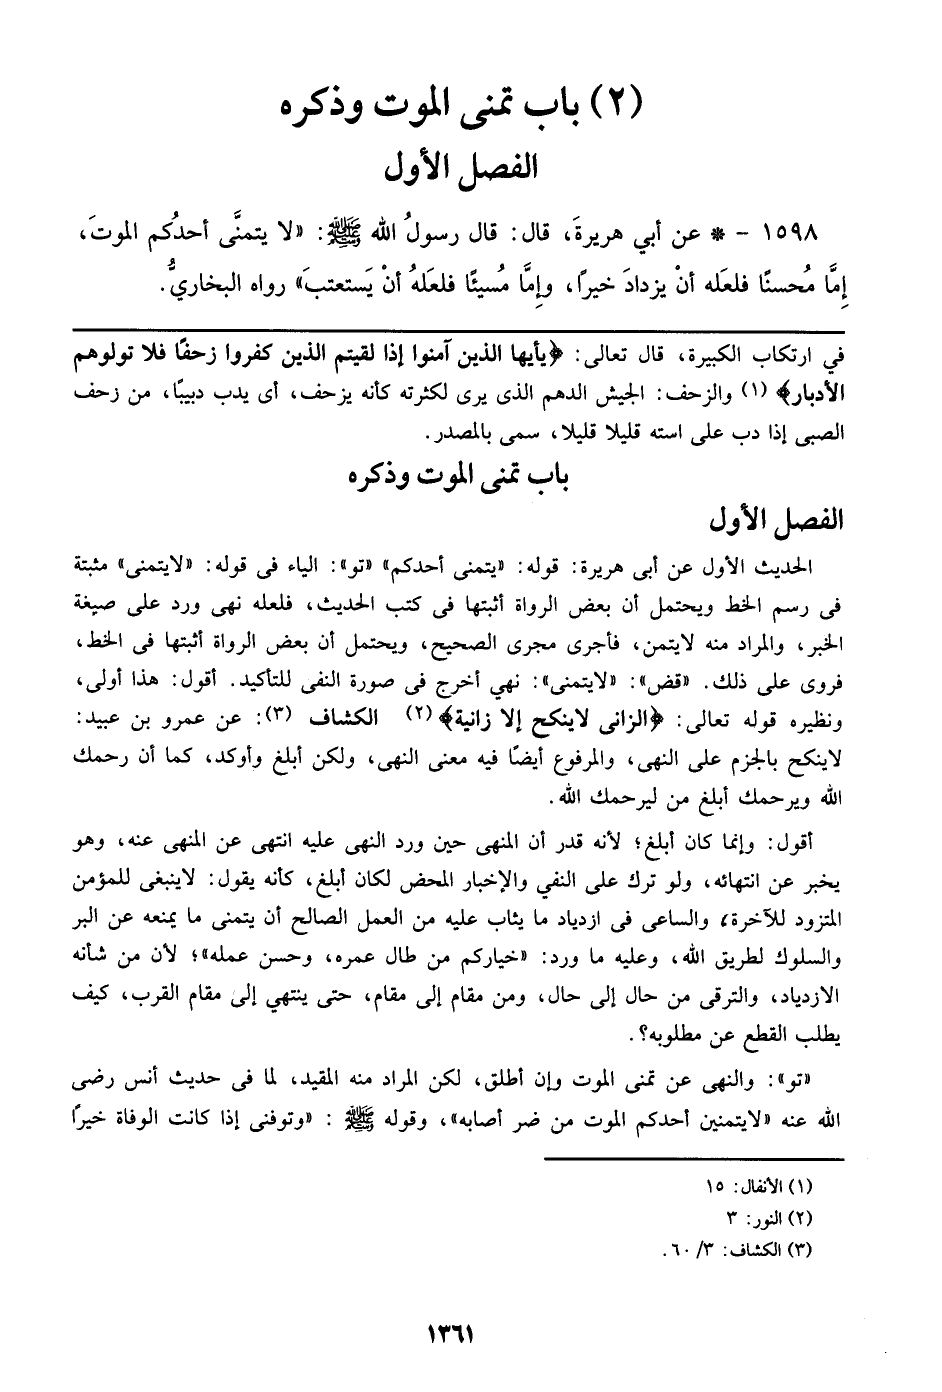 (٢) باب تمنى الموت وذكره
الفصل الأول
١٥٩٨ - * عن أبي هريرةَ، قال: قال رسولُ الله ﷺ: «لا يتمنَّى أحدُكم الموتَ،
إِمَّا مُحسنًا فلعَله أنْ يزدادَ خيرًا، وإِمَّا مُسيئًا فلعَلهُ أنْ يَستعتبَ» رواه البخاريُّ.
في ارتكاب الكبيرة، قال تعالى: ﴿يأيها الذين آمنوا إذا لقيتم الذين كفروا زحفًا فلا تولوهم
الأدبار﴾ (١) والزحف: الجيش الدهم الذى يرى لكثرته كأنه يزحف، أى يدب دبيبًا، من زحف
الصبى إذا دب على استه قليلا قليلا، سمى بالمصدر.
باب تمنى الموت وذكره
الفصل الأول
الحديث الأول عن أبى هريرة: قوله: «يتمنى أحدكم» «تو»: الياء فى قوله: «لايتمنى» مثبتة
فى رسم الخط ويحتمل أن بعض الرواة أثبتها فى كتب الحديث، فلعله نهى ورد على صيغة
الخبر، والمراد منه لايتمن، فأجرى مجرى الصحيح، ويحتمل أن بعض الرواة أثبتها فى الخط،
فروى على ذلك. «قض»: «لايتمنى»: نهي أخرج فى صورة النفى للتأكيد. أقول: هذا أولى،
ونظيره قوله تعالى: ﴿الزانى لاينكح إلا زانية﴾ (٢) الكشاف (٣): عن عمرو بن عبيد:
لاينكح بالجزم على النهى، والمرفوع أيضًا فيه معنى النهى، ولكن أبلغ وأوكد، كما أن رحمك
الله ويرحمك أبلغ من ليرحمك الله.
أقول: وإنما كان أبلغ؛ لأنه قدر أن المنهى حين ورد النهى عليه انتهى عن المنهى عنه، وهو
يخبر عن انتهائه، ولو ترك على النفي والإخبار المحض لكان أبلغ، كأنه يقول: لاينبغى للمؤمن
المتزود للآخرة، والساعى فى ازدياد ما يثاب عليه من العمل الصالح أن يتمنى ما يمنعه عن البر
والسلوك لطريق الله، وعليه ما ورد: «خياركم من طال عمره، وحسن عمله»؛ لأن من شأنه
الازدياد، والترقى من حال إلى حال، ومن مقام إلى مقام، حتى ينتهي إلى مقام القرب، كيف
يطلب القطع عن مطلوبه؟.
«تو»: والنهى عن تمنى الموت وإن أطلق، لكن المراد منه المقيد، لما فى حديث أنس رضى
الله عنه «لايتمنين أحدكم الموت من ضر أصابه»، وقوله ﷺ : «وتوفنى إذا كانت الوفاة خيرًا
(١) الأنفال: ١٥
(٢) النور: ٣
(٣) الكشاف: ٦٠/٣.
١٣٦١